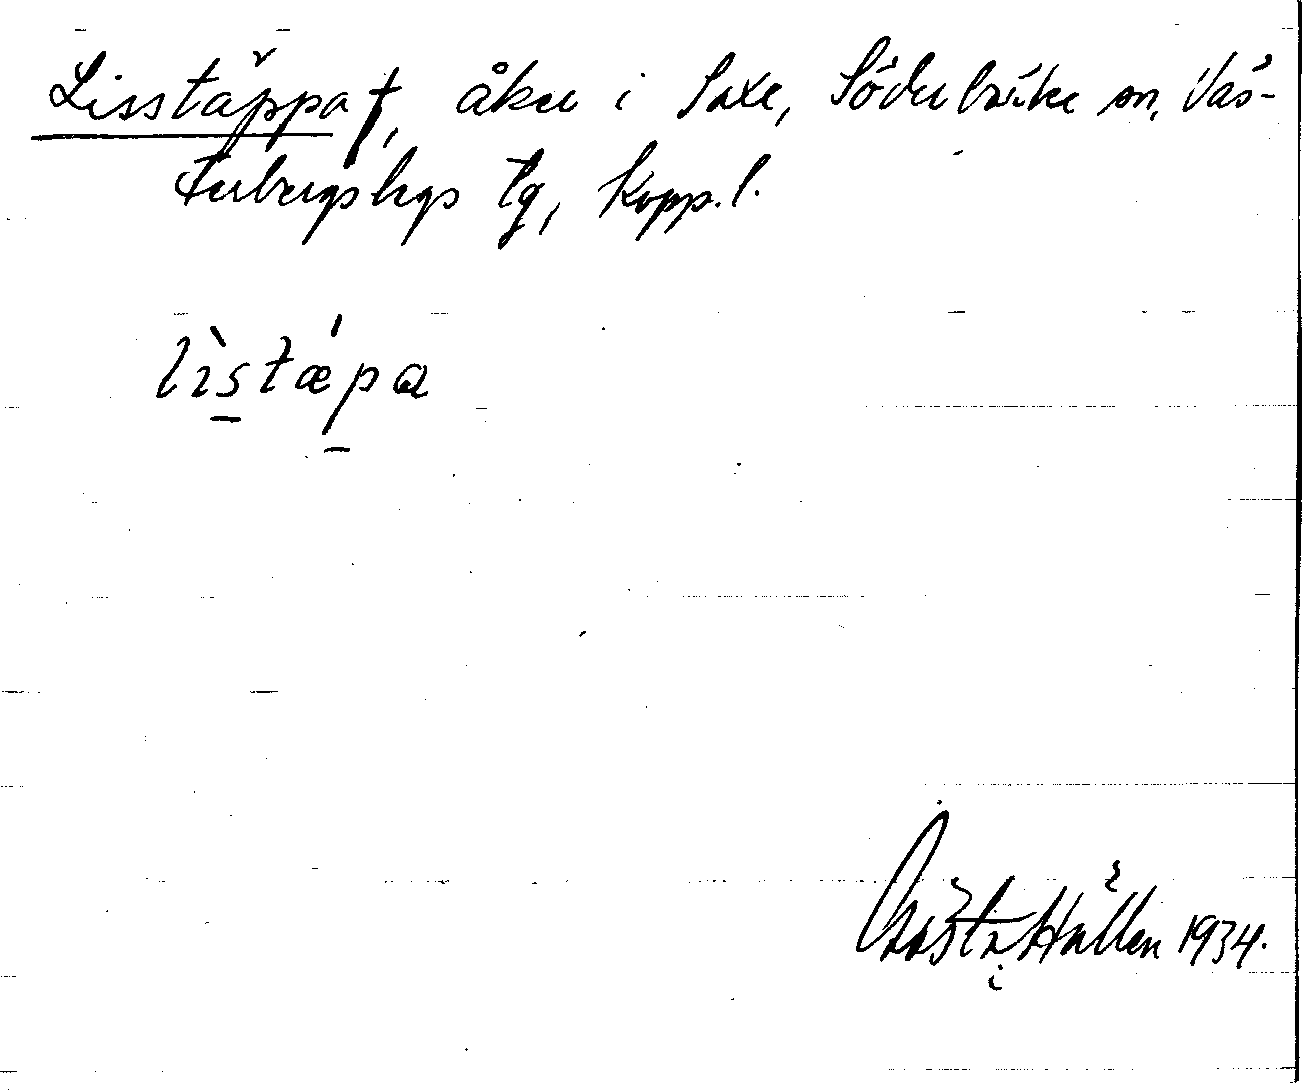 Lisstäppa †, åker i Saxe, Söderbärke sn, Väs-
terbergslags tg, Kopp. l.
lìstǽpa
Hållén 1934.